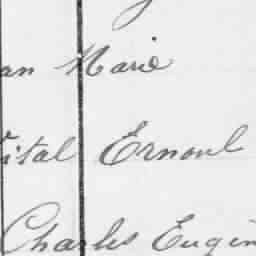 an Marie
ital Ernoul
Charles Eugèn